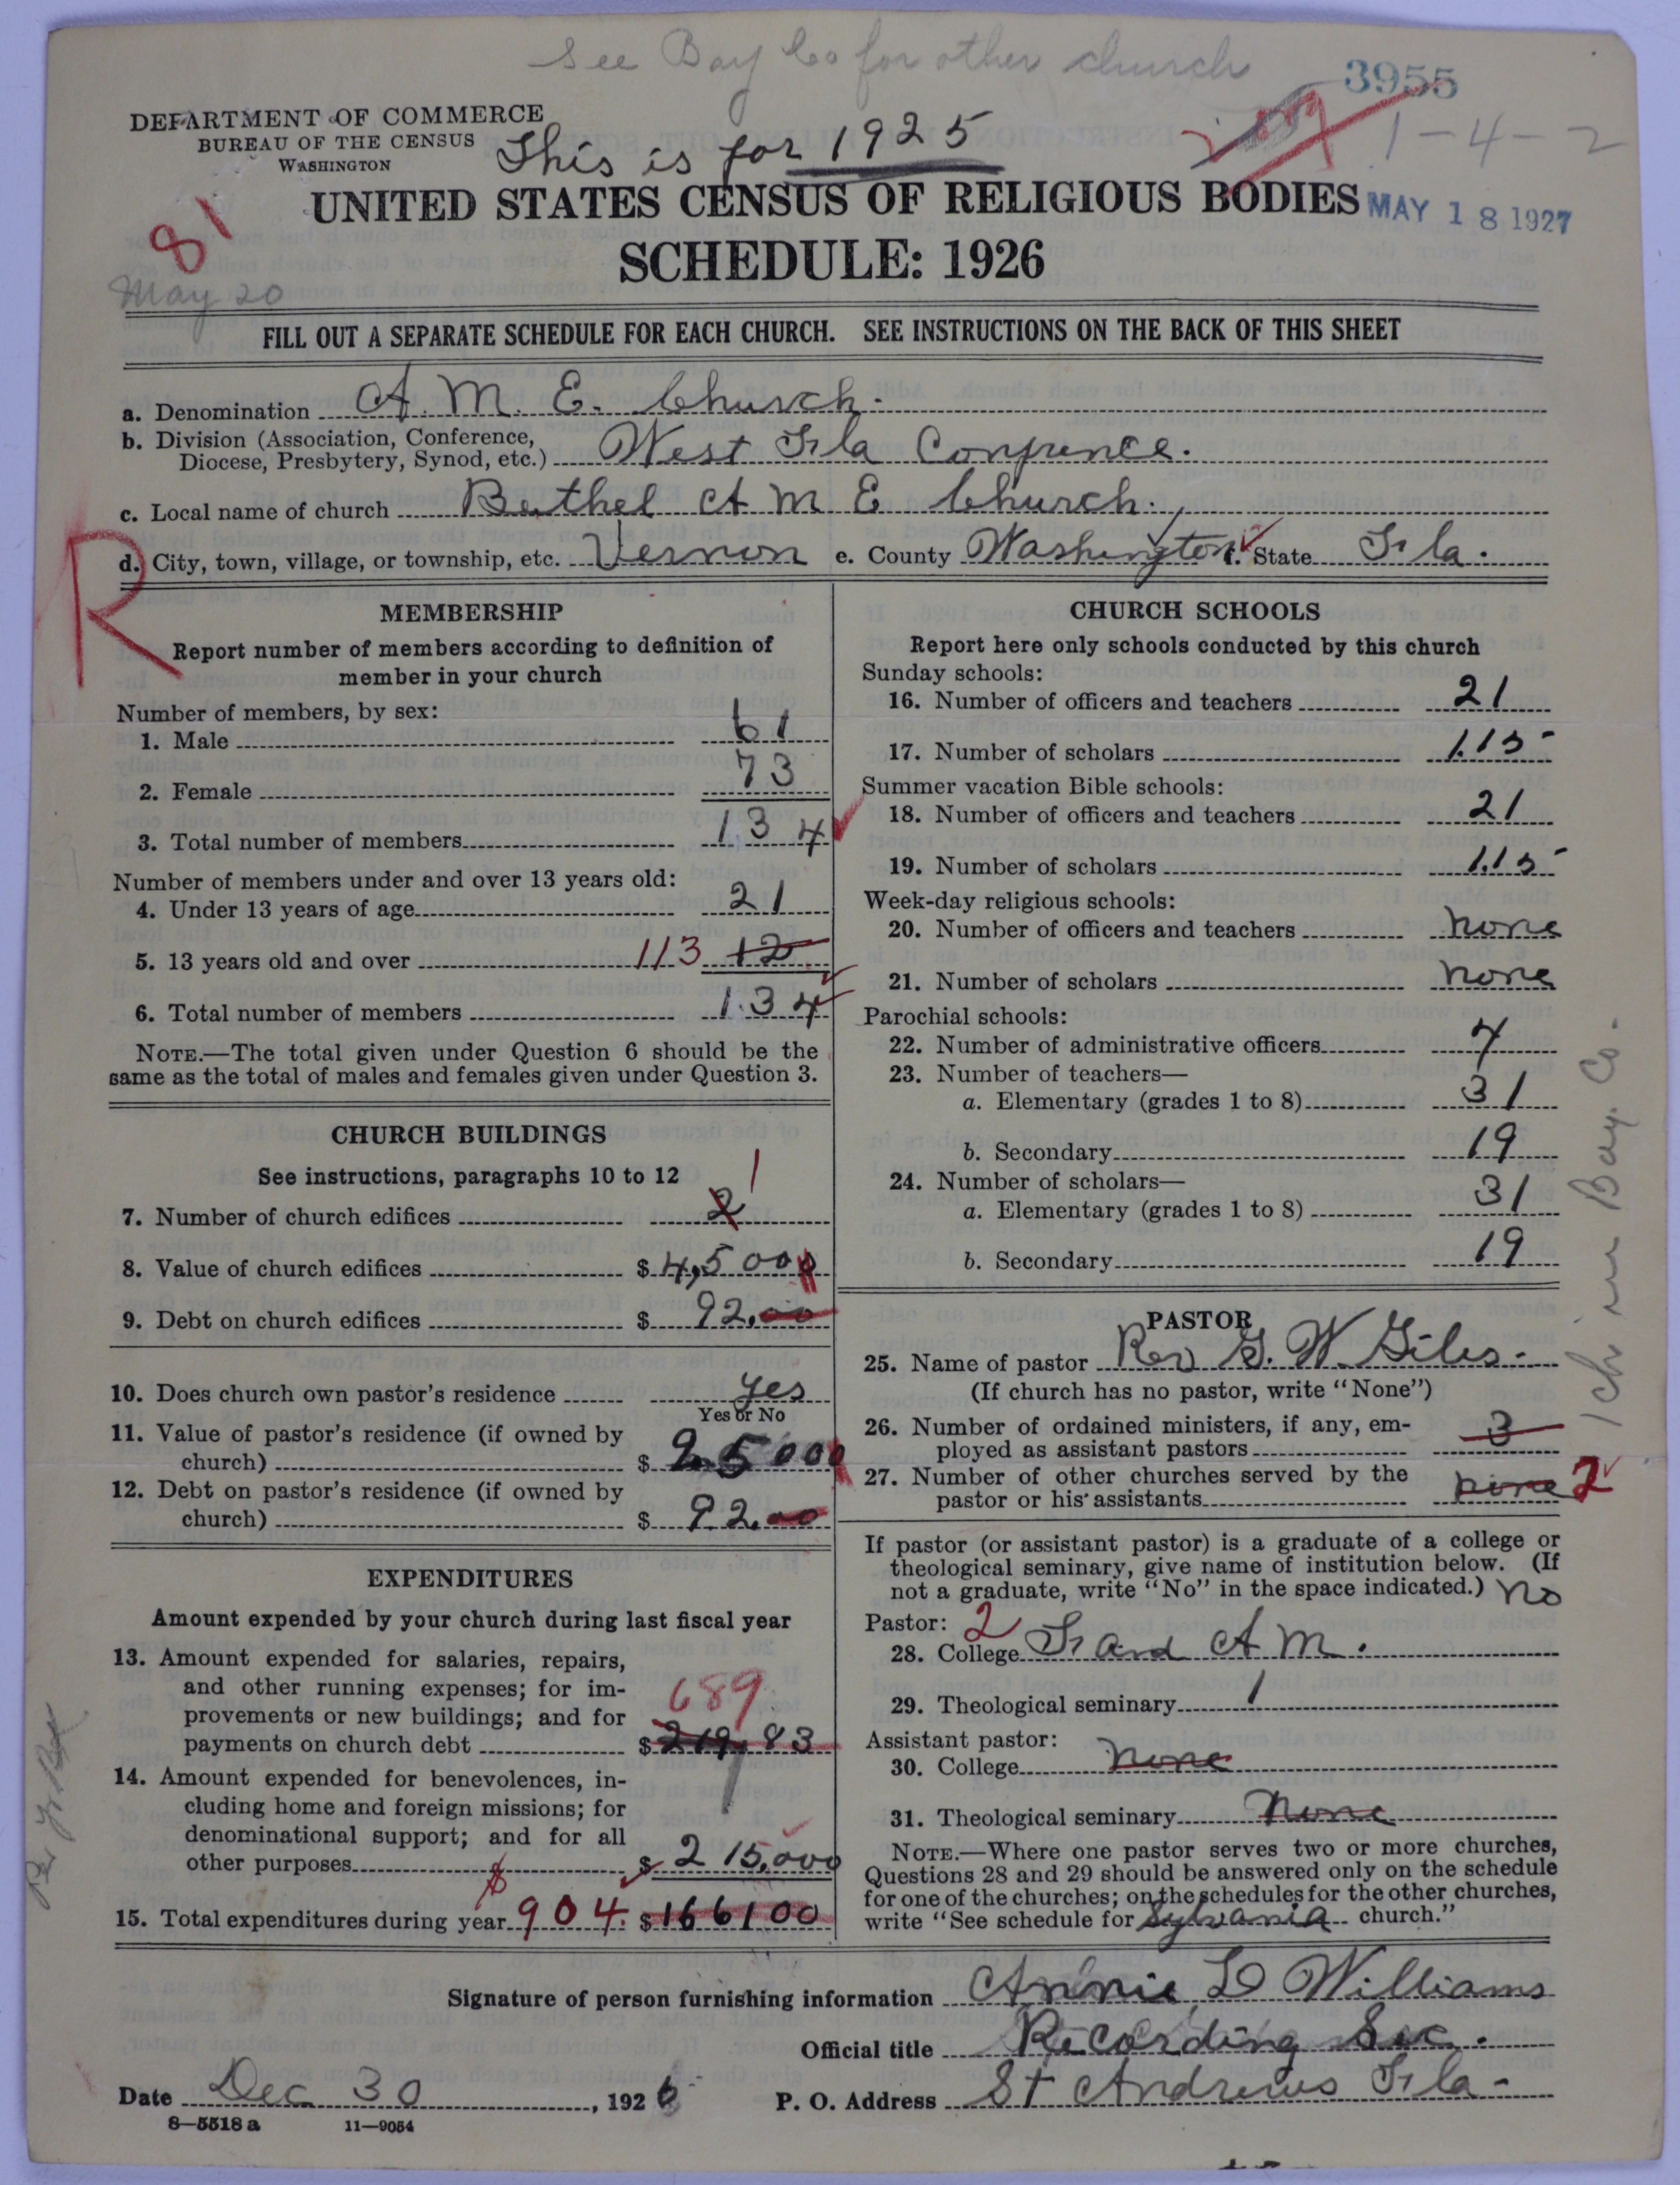 See Bay Co for other church
3955
DEPARTMENT OF COMMERCE
BUREAU OF THE CENSUS
WASHINGTON
This is for 1925
1-4-2
UNITED STATES CENSUS OF RELIGIOUS BODIES
MAY 18 1927
81
SCHEDULE: 1926
May 20
FILL OUT A SEPARATE SCHEDULE FOR EACH CHURCH. SEE INSTRUCTIONS ON THE BACK OF THIS SHEET
a. Denomination A. M. E. Church.
b. Division (Association, Conference,
Diocese, Presbytery, Synod, etc.) West Fla Confrence.
c. Local name of church Bethel A M E Church.
R
d. City, town, village, or township, etc. Vernon e. County Washington f. State Fla.
MEMBERSHIP
Report number of members according to definition of
member in your church
Number of members, by sex:
1. Male 61
2. Female 73
3. Total number of members 134
Number of members under and over 13 years old:
4. Under 13 years of age 21
5. 13 years old and over 113 12
6. Total number of members 134
NOTE.—The total given under Question 6 should be the
same as the total of males and females given under Question 3.
CHURCH BUILDINGS
See instructions, paragraphs 10 to 12
7. Number of church edifices 2 1
8. Value of church edifices $ 4,5000
9. Debt on church edifices $ 92.00
10. Does church own pastor's residence yes
Yes or No
11. Value of pastor's residence (if owned by
church) $ 25000
12. Debt on pastor's residence (if owned by
church) $ 92.00
EXPENDITURES
Amount expended by your church during last fiscal year
13. Amount expended for salaries, repairs,
and other running expenses; for im-
provements or new buildings; and for
689
payments on church debt $ 219.83
14. Amount expended for benevolences, in-
cluding home and foreign missions; for
denominational support; and for all
other purposes $ 215.000
15. Total expenditures during year $ 904. $ 166100
CHURCH SCHOOLS
Report here only schools conducted by this church
Sunday schools:
16. Number of officers and teachers 21
17. Number of scholars 115
Summer vacation Bible schools:
18. Number of officers and teachers 21
19. Number of scholars 115
Week-day religious schools:
20. Number of officers and teachers none
21. Number of scholars none
Parochial schools:
22. Number of administrative officers 4
23. Number of teachers—
a. Elementary (grades 1 to 8) 31
b. Secondary 19
24. Number of scholars—
a. Elementary (grades 1 to 8) 31
b. Secondary 19
PASTOR
25. Name of pastor Rev G. W. Giles.
(If church has no pastor, write "None")
26. Number of ordained ministers, if any, em-
ployed as assistant pastors 3
27. Number of other churches served by the
pastor or his assistants none 2
If pastor (or assistant pastor) is a graduate of a college or
theological seminary, give name of institution below. (If
not a graduate, write "No" in the space indicated.) No
Pastor: 2
28. College F and A M.
29. Theological seminary 1
Assistant pastor:
30. College none
31. Theological seminary None
NOTE.—Where one pastor serves two or more churches,
Questions 28 and 29 should be answered only on the schedule
for one of the churches; on the schedules for the other churches,
write "See schedule for Sylvania church."
1 ch in Bay Co.
Signature of person furnishing information Annie L Williams
Official title Recording Sec.
Date Dec 30, 1926 P. O. Address St Andrews Fla.
8—5518 a 11—9054